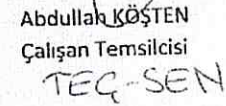 Abdullah KÖŞTEN
Çalışan Temsilcisi
TEÇ-SEN